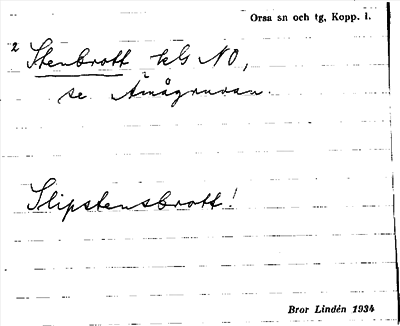 Orsa sn och tg, Kopp. l.
2 Stenbrott kls NO,
se Åmågruvan.
Slipstensbrott!
Bror Lindén 1934